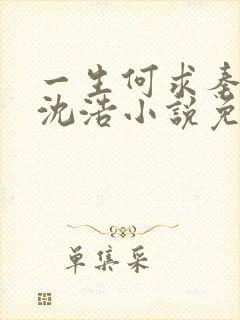 一生何求秦
沈浩小說免
单集采